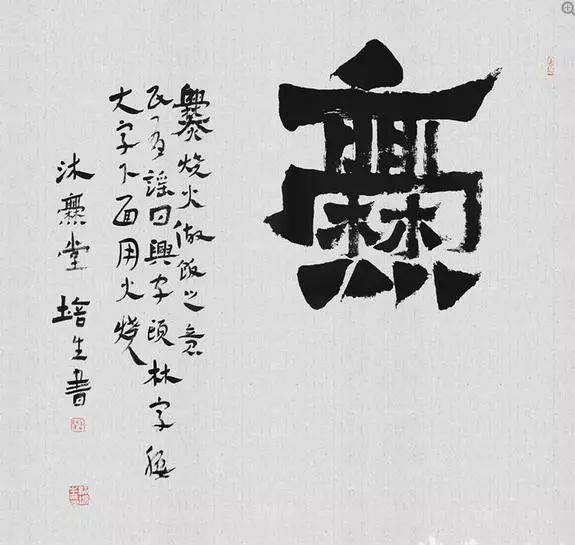 爨
爨烧火做飯之意
民间有謡曰興字頭林字腰
大字下面用火燒
沐爨堂 培生書